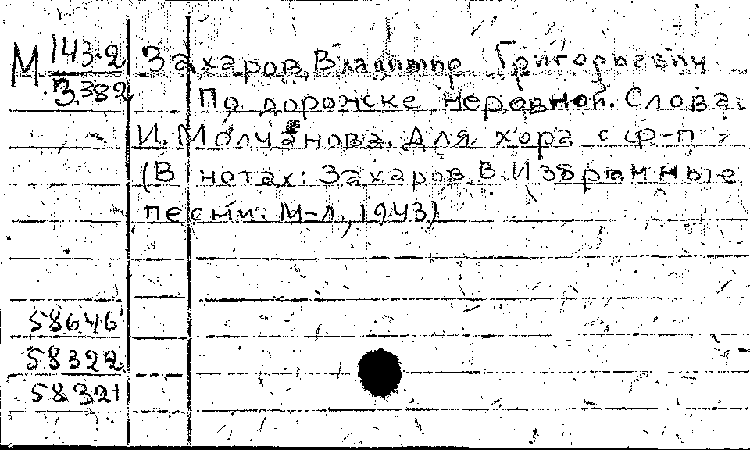 М 143-2 Захаров, Владимир Григорьевич
З 382 По дорожке неровной. Слова
И. Молчанова. Для хора с ф-п
(В нотах: Захаров. В. Избранные
песни. М-Л, 1943)
58646
58322
58321